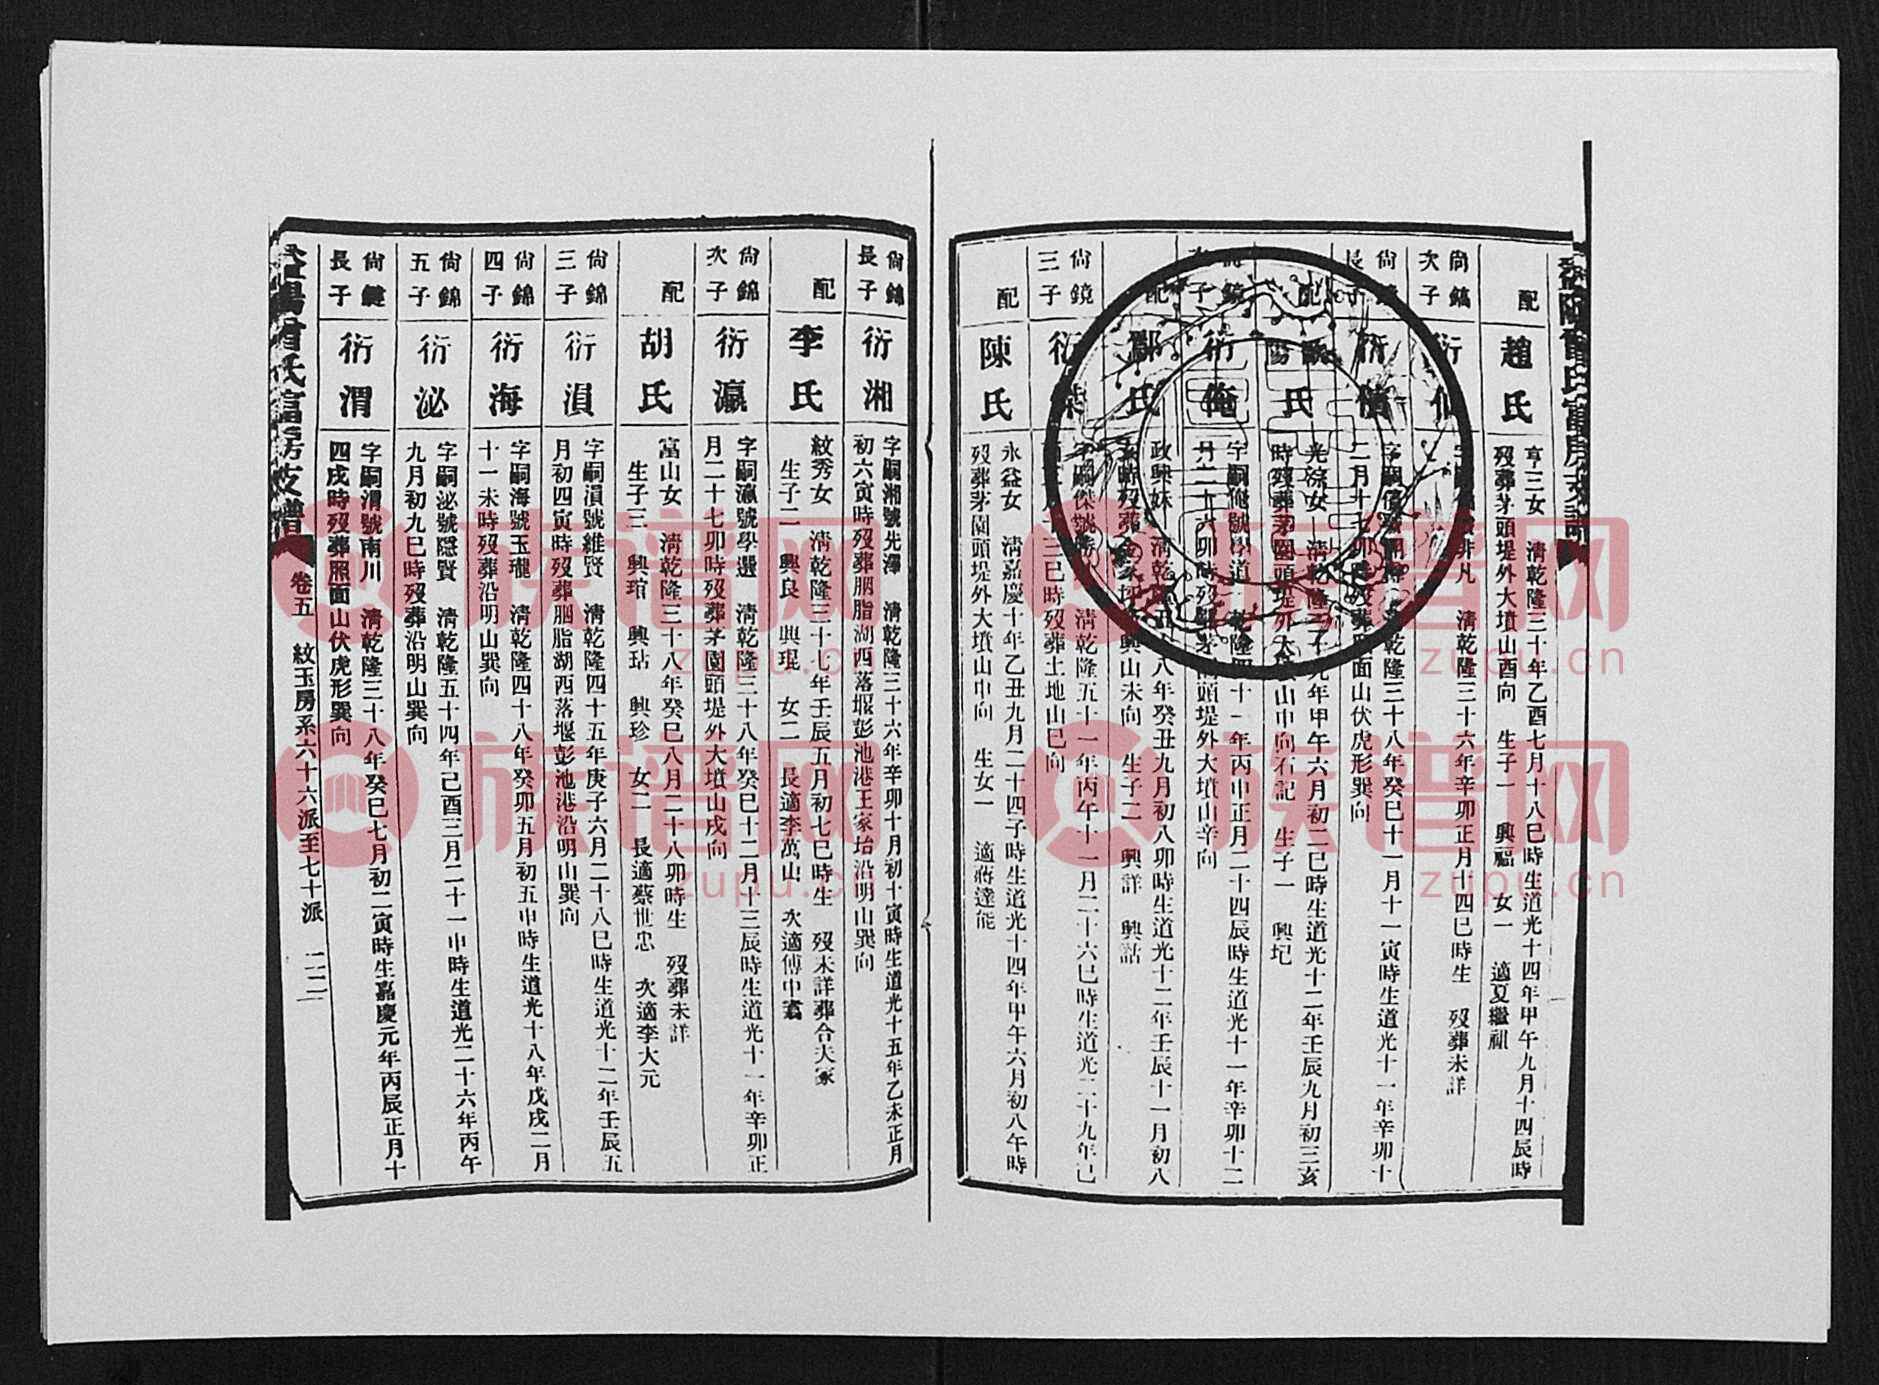 益陽曾氏富房支譜
配
趙氏
亨三女　清乾隆三十年乙酉七月十八巳時生道光十四年甲午九月十四辰時
歿葬茅頭堤外大墳山酉向　生子一　興福　女一　適夏繼祖
尙鎬
次子
衍仙
清乾隆三十六年辛卯正月十四巳時生　歿葬未詳
長子
字嗣
乾隆三十八年癸巳十一月十一寅時生道光十一年辛卯十
二月十七卯時歿葬照面山伏虎形巽向
配
歐陽氏
光綜女　清乾隆三十九年甲午六月初二巳時生道光十二年壬辰九月初三亥
時歿葬茅園頭堤外大墳山申向石記　生子一　興圮
尙鏡
次子
衍俺
字嗣俺號學道　乾隆四十一年丙申正月二十四辰時生道光十一年辛卯十二
廿六卯時歿葬茅園頭堤外大墳山辛向
配
鄒氏
政興妹　清乾隆五十八年癸丑九月初八卯時生道光十二年壬辰十一月初八
興山未向　生子二　興詳　興詁
尙鏡
三子
衍傑
字嗣傑號　清乾隆五十一年丙午十一月二十六巳時生道光二十九年己
三巳時歿葬土地山巳向
配
陳氏
永益女　清嘉慶十年乙丑九月二十四子時生道光十四年甲午六月初八午時
歿葬茅園頭堤外大墳山申向　生女一　適蔣達能
尙錦
長子
衍湘
字嗣湘號先澤　清乾隆三十六年辛卯十月初十寅時生道光十五年乙未正月
初六寅時歿葬胭脂湖西落堰彭池港王家坮沿明山巽向
配
李氏
紋秀女　清乾隆三十七年壬辰五月初七巳時生　歿未詳葬合大冢
生子二　興良　興琨　女二　長適李萬山　次適傅中翥
尙錦
次子
衍瀛
字嗣瀛號學選　清乾隆三十八年癸巳十二月十三辰時生道光十一年辛卯正
月二十七卯時歿葬茅園頭堤外大墳山戌向
配
胡氏
富山女　清乾隆三十八年癸巳八月二十八卯時生　歿葬未詳
生子三　興琯　興玷　興珍　女二　長適蔡世忠　次適李大元
尙錦
三子
衍溳
字嗣溳號維賢　清乾隆四十五年庚子六月二十八巳時生道光十二年壬辰五
月初四寅時歿葬胭脂湖西落堰彭池港沿明山巽向
尙錦
四子
衍海
字嗣海號玉瓏　清乾隆四十八年癸卯五月初五申時生道光十八年戊戌二月
十一未時歿葬沿明山巽向
尙錦
五子
衍泌
字嗣泌號隱賢　清乾隆五十四年己酉三月二十一申時生道光二十六年丙午
九月初九巳時歿葬沿明山巽向
尙鍵
長子
衍渭
字嗣渭號南川　清乾隆三十八年癸巳七月初二寅時生嘉慶元年丙辰正月十
四戌時歿葬照面山伏虎形巽向
益陽曾氏富房支譜
卷五　紋玉房系六十六派至七十派　二二
族谱网
zupu.cn
族谱网
zupu.cn
族谱网
zupu.cn
族谱网
zupu.cn